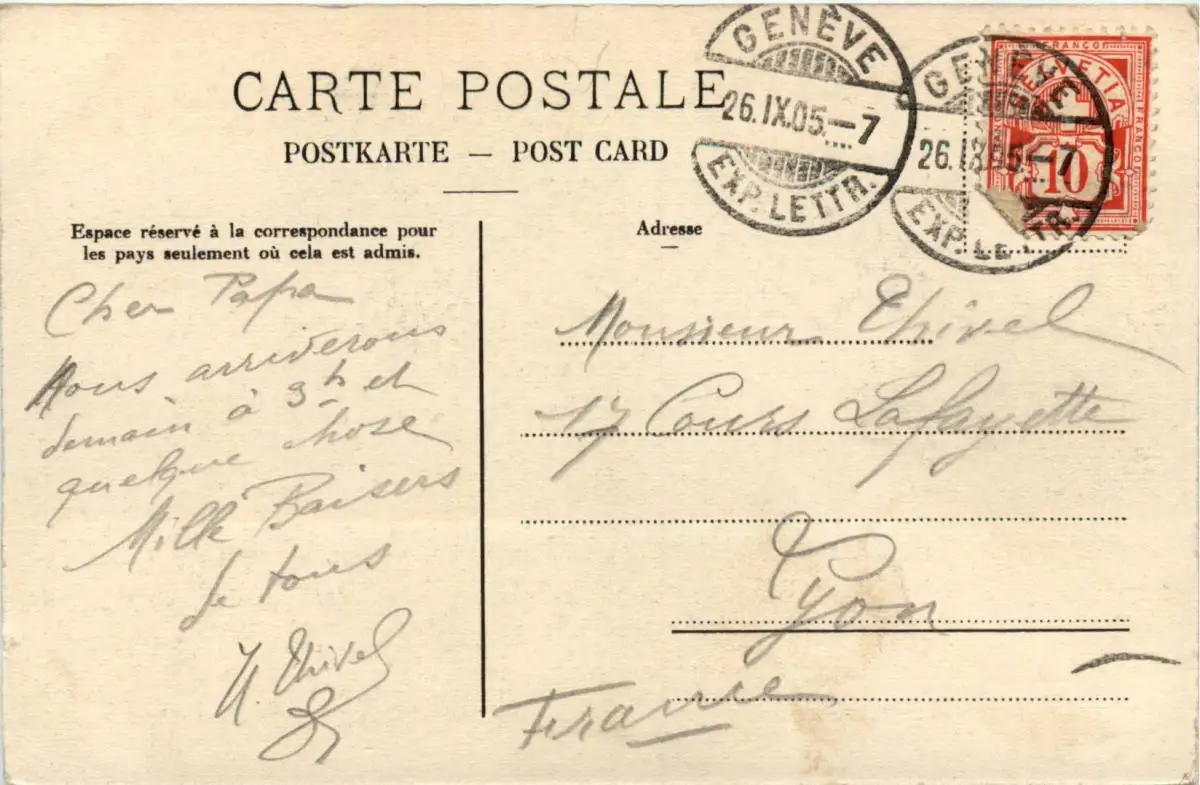 CARTE POSTALE
POSTKARTE — POST CARD
GENÈVE
26.IX.05.—7
EXP. LETTR.
GENÈVE
26.IX.05.—7
EXP. LETTR.
FRANCO
HELVETIA
FRANCO
10
Espace réservé à la correspondance pour
les pays seulement où cela est admis.
Cher Papa
Nous arriverons
demain à 3h et
quelque chose
Mille Baisers
de tous
Thivel
Adresse
Monsieur Thivel
17 Cours Lafayette
Lyon
France